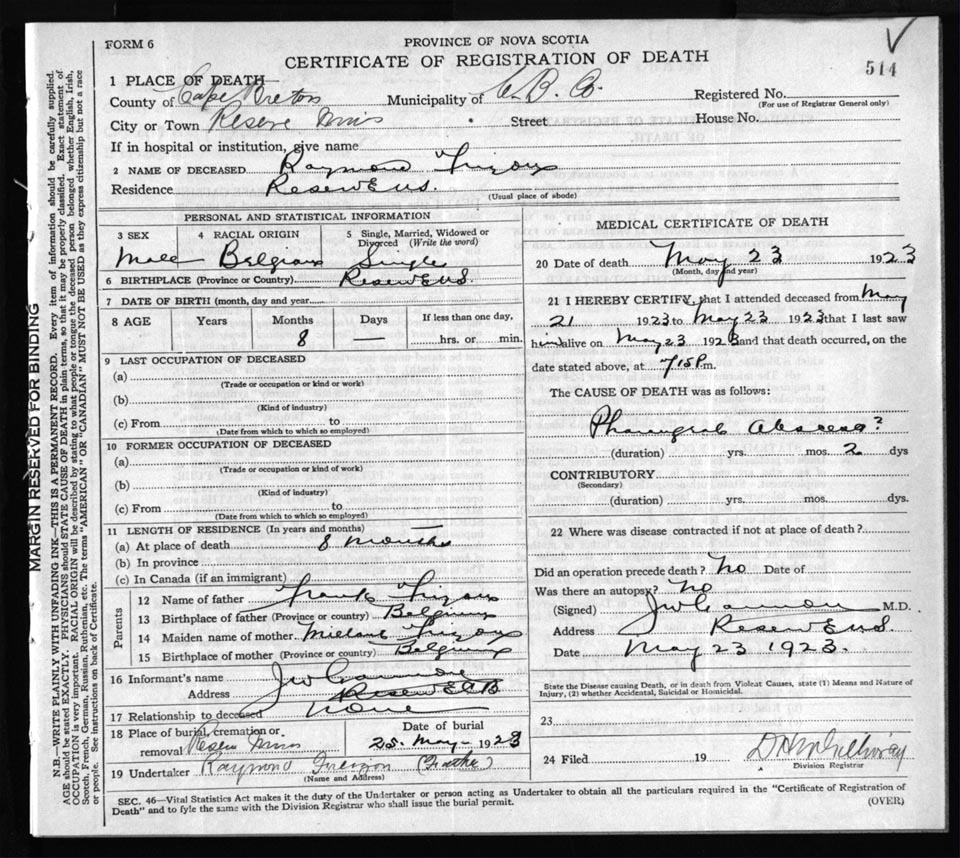 FORM 6
PROVINCE OF NOVA SCOTIA
CERTIFICATE OF REGISTRATION OF DEATH
514
1 PLACE OF DEATH
County of Cape Breton Municipality of C. B. Co. Registered No.
(For use of Registrar General only)
City or Town Reserve Mines Street House No.
If in hospital or institution, give name
2 NAME OF DECEASED Raymond
Residence Reserve
(Usual place of abode)
PERSONAL AND STATISTICAL INFORMATION
3 SEX 4 RACIAL ORIGIN 5 Single, Married, Widowed or Divorced (Write the word)
Male Belgian Single
6 BIRTHPLACE (Province or Country) Reserve
7 DATE OF BIRTH (month, day and year)
8 AGE Years Months Days If less than one day,
8 — hrs. or min.
9 LAST OCCUPATION OF DECEASED
(a)
(Trade or occupation or kind or work)
(b)
(Kind of industry)
(c) From to
(Date from which to which so employed)
10 FORMER OCCUPATION OF DECEASED
(a)
(Trade or occupation or kind of work)
(b)
(Kind of industry)
(c) From to
(Date from which to which so employed)
11 LENGTH OF RESIDENCE (In years and months)
(a) At place of death 8 months
(b) In province
(c) In Canada (if an immigrant)
Parents
12 Name of father Frank
13 Birthplace of father (Province or country) Belgium
14 Maiden name of mother
15 Birthplace of mother (Province or country) Belgium
16 Informant's name
Address Reserve
17 Relationship to deceased none
18 Place of burial, cremation or removal Reserve Mines
Date of burial
25 May 1923
19 Undertaker Raymond (Father)
(Name and Address)
MEDICAL CERTIFICATE OF DEATH
20 Date of death May 23 1923
(Month, day and year)
21 I HEREBY CERTIFY, that I attended deceased from May
21 1923 to May 23 1923 that I last saw
him alive on May 23 1923 and that death occurred, on the
date stated above, at 7 15 P.m.
The CAUSE OF DEATH was as follows:
Abscess?
(duration) yrs. mos. 2 dys
CONTRIBUTORY
(Secondary)
(duration) yrs. mos. dys.
22 Where was disease contracted if not at place of death?
Did an operation precede death? No Date of
Was there an autopsy? No
(Signed) M.D.
Address Reserve
Date May 23 1923.
State the Disease causing Death, or in death from Violent Causes, state (1) Means and Nature of
Injury, (2) whether Accidental, Suicidal or Homicidal.
23
24 Filed 19
Division Registrar
SEC. 46—Vital Statistics Act makes it the duty of the Undertaker or person acting as Undertaker to obtain all the particulars required in the "Certificate of Registration of
Death" and to fyle the same with the Division Registrar who shall issue the burial permit.
(OVER)
MARGIN RESERVED FOR BINDING
N.B.—WRITE PLAINLY WITH UNFADING INK—THIS IS A PERMANENT RECORD. Every item of information should be carefully supplied.
AGE should be stated EXACTLY. PHYSICIANS should STATE CAUSE OF DEATH in plain terms, so that it may be properly classified. Exact statement of
OCCUPATION is very important. RACIAL ORIGIN will be described by stating to what people or tongue the deceased person belonged whether English, Irish,
Scotch, French, German, Russian, Ruthenian, etc. The terms "AMERICAN" OR "CANADIAN" MUST NOT BE USED as they express citizenship but not a race
or people. See instructions on back of Certificate.